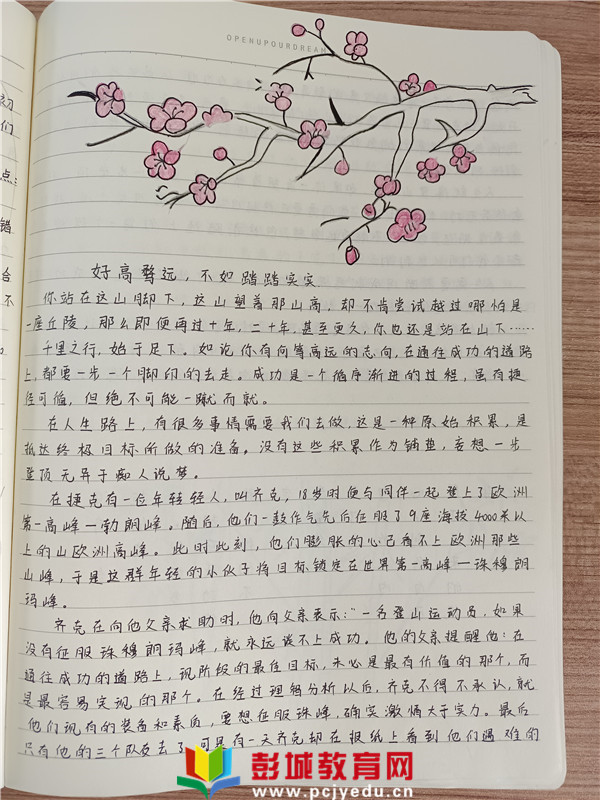 OPENUPOURDREAM
初
们
点:
错
合
不
好高骛远，不如踏踏实实
你站在这山脚下，这山望着那山高，却不肯尝试越过哪怕是
一座丘陵，那么即便再过十年，二十年，甚至更久，你也还是站在山下……
千里之行，始于足下。如论你有何等高远的志向，在通往成功的道路
上，都要一步一个脚印的去走。成功是一个循序渐进的过程，虽有捷
径可循，但绝不可能一蹴而就。
在人生路上，有很多事情需要我们去做，这是一种原始积累，是
抵达终极目标所做的准备。没有这些积累作为铺垫，妄想一步
登顶无异于痴人说梦。
在捷克有一位年轻轻人，叫齐克，18岁时便与同伴一起登上了欧洲
第一高峰—勃朗峰。随后，他们一鼓作气先后征服了9座海拔4000米以
上的山欧洲高峰。此时此刻，他们膨胀的心已看不上欧洲那些
山峰，于是这群年轻的小伙子将目标锁定在世界第一高峰—珠穆朗
玛峰。
齐克在向他父亲求助时，他向父亲表示："一名登山运动员，如果
没有征服珠穆朗玛峰，就永远谈不上成功。他的父亲提醒他：在
通往成功的道路上，现阶段的最佳目标，未必是最有价值的那个，而
是最容易实现的那个。在经过理智分析以后，齐克不得不承认，就
他们现有的装备和素质，要想征服珠峰，确实激情大于实力。最后
只有他的三个队友去了，可是有一天齐克却在报纸上看到他们遇难的
彭城教育网
www.pcjyedu.cn